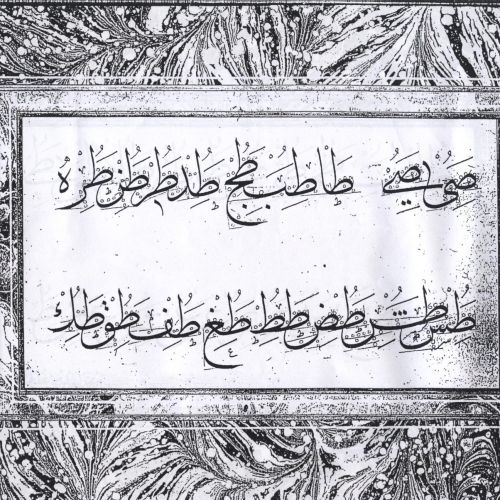 صى صے طا طب طج طد طر طز طره
طس طض طط طغ طف طق طك